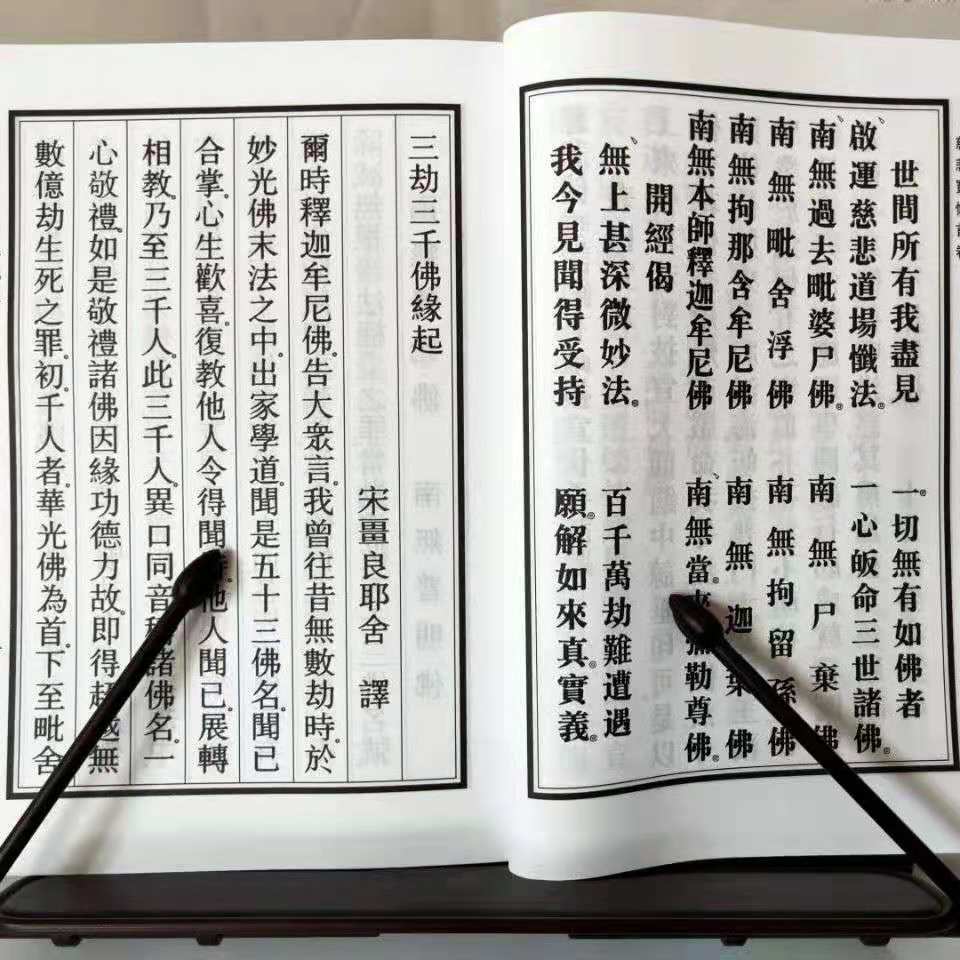 世間所有我盡見　一切無有如佛者
啟運慈悲道場懺法。一心皈命三世諸佛。
南無過去毗婆尸佛。　南無尸棄佛
南無毗舍浮佛　南無拘留孫佛
南無拘那含牟尼佛　南無迦葉佛
南無本師釋迦牟尼佛　南無當來彌勒尊佛。
開經偈
無上甚深微妙法。　百千萬劫難遭遇
我今見聞得受持　願解如來真實義。
三劫三千佛緣起
宋畺良耶舍　譯
爾時釋迦牟尼佛。告大眾言。我曾往昔無數劫時。於
妙光佛末法之中。出家學道。聞是五十三佛名。聞已
合掌。心生歡喜。復教他人令得聞。他人聞已。展轉
相教。乃至三千人。此三千人。異口同音。稱諸佛名。一
心敬禮。如是敬禮諸佛因緣功德力故。即得超越無
數億劫生死之罪。初千人者。華光佛為首。下至毗舍